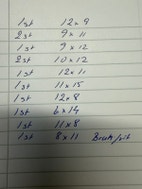 1st 12 x 9
2st 9 x 11
1st 9 x 12
2st 10 x 12
1st 12 x 11
1st 11 x 15
1st 12 x 8
1st 6 x 14
1st 11 x 8
1st 8 x 11